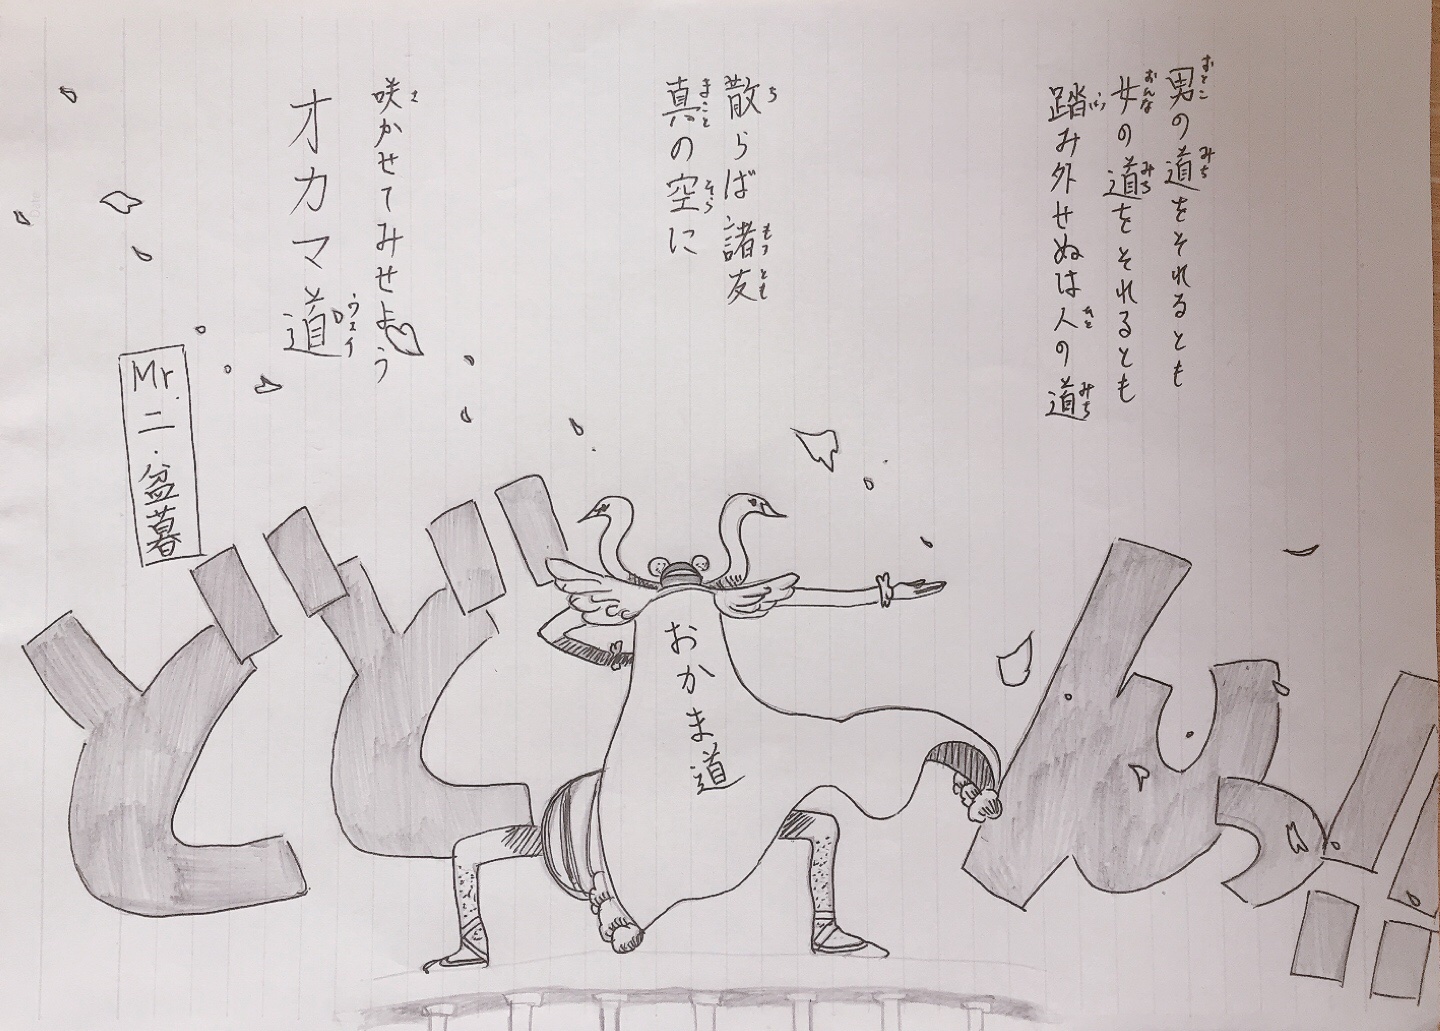 男の道をそれるとも
女の道をそれるとも
踏み外せぬは人の道
散らば諸友
真の空に
咲かせてみせよう
オカマ道
Mr.二・盆暮
おかま道
どどん!!